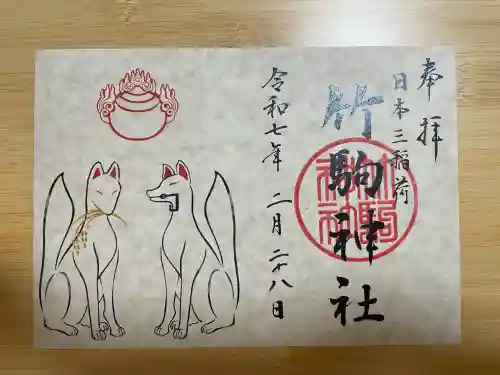 奉拝
日本三稲荷
竹駒神社
令和七年 二月 二十八日
竹駒神社